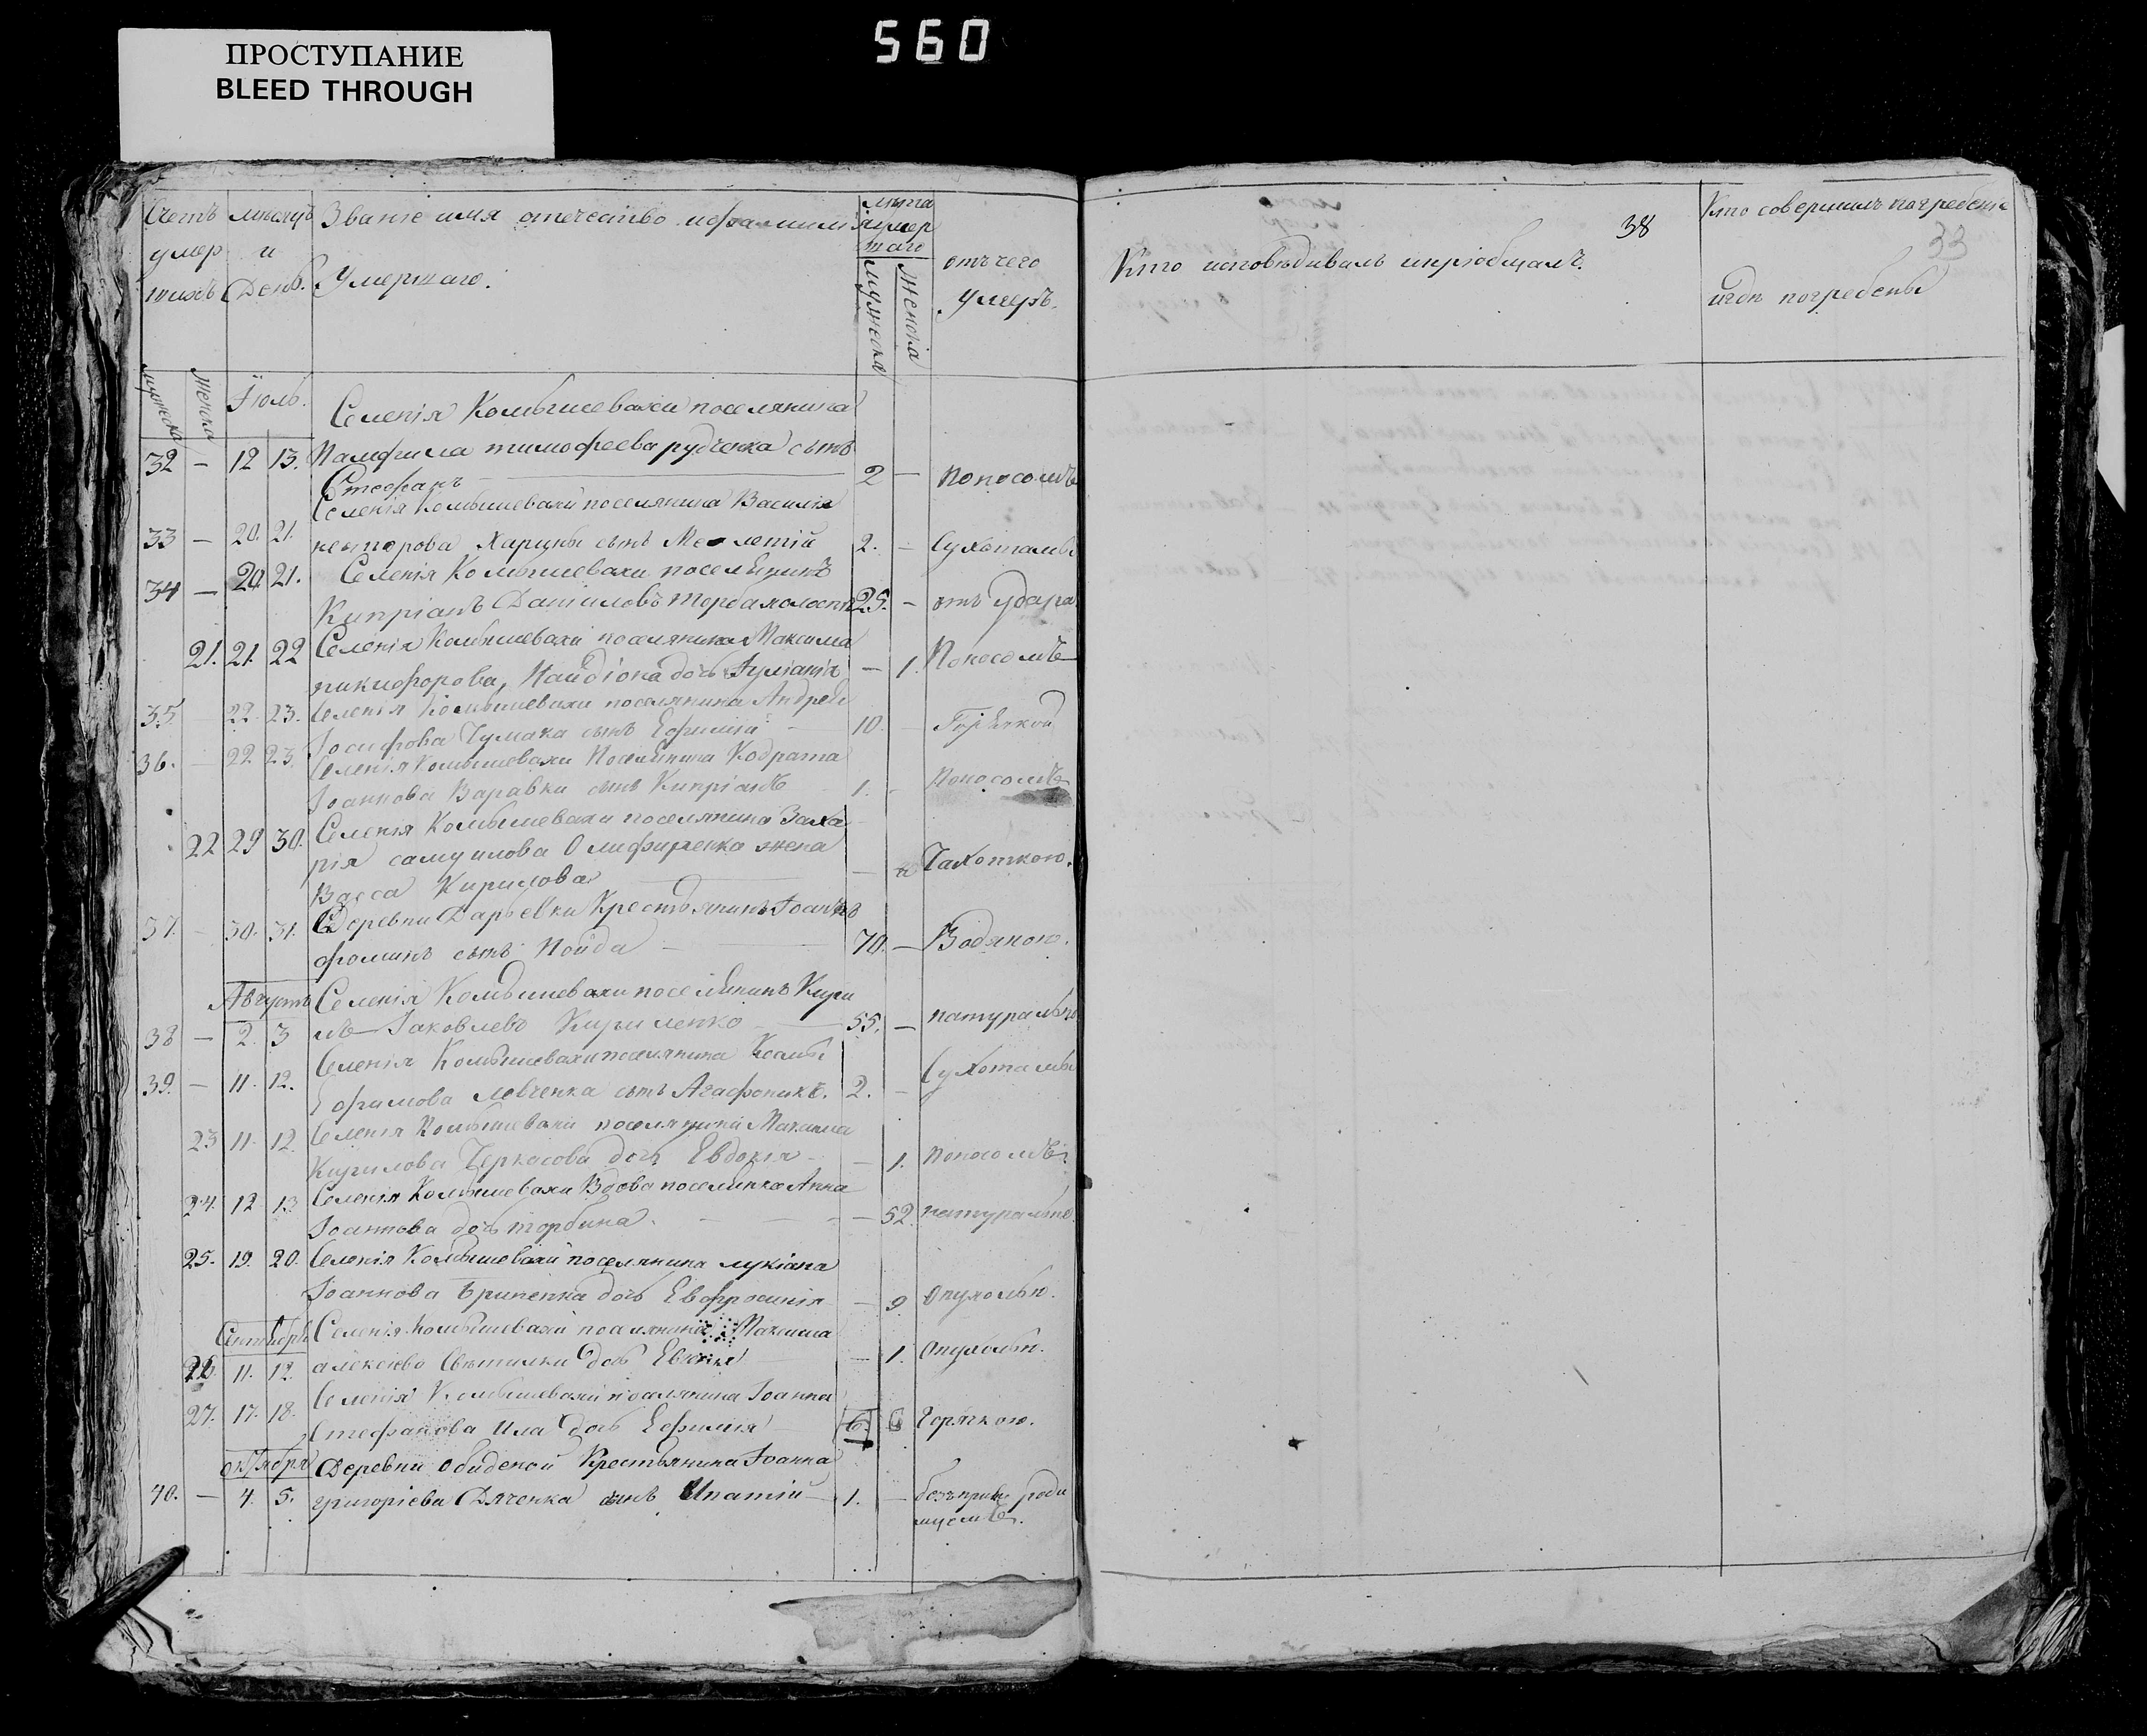 560
ПРОСТУПАНИЕ
BLEED THROUGH
Счетъ умер шихъ
мѣсяцъ и День.
Званіе имя отечество ифамилія Умершаго.
лѣта умер шаго
мужеска
женска
отъ чего умеръ.
38
Кто исповѣдивалъ ипріобщалъ.
Кто совершилъ погребеніе
33
игдѣ погребены
мужеска
женска
Іюль.
Селенія Комышевахи поселянина
32 — 12 13. Памфила тимофеева рудченка сынъ
Стефанъ — 2 — поносомъ
Селенія Комышевахи поселянина Василія
33 — 20. 21. несторова Харины сынъ Мелетій 2. — Сухотамы
34 — 20. 21. Селенія Комышевахи поселянинъ
Кипріанъ Даніиловъ Торба холостъ 25. — отъ удара
21. 21. 22 Селенія Комышевахи поселянина Максима
никифорова, Найдіона дочь Іуліанія — 1. Поносомъ
35 22. 23. Селенія Комышевахи поселянина Андрея
Іосифова Чумака сынъ Ефимій 10. Горячкой
36. 22 23. Селенія Комышевахи Поселянина Кодрата
Іоаннова Варавки сынъ Кипріанъ 1. — Поносомъ
22 29 30. Селенія Комышевахи поселянина Заха
рія самуилова Олифиренка жена
Васса Кирилова — Чахоткою.
37. — 30. 31. Деревни Дарьевки Крестьянинъ Іоаннъ
фоминъ сынъ Пойда — 70. — Водяною.
Августъ
Селенія Комышевахи поселянинъ Кири
38 — 2. 3 лъ Іаковлевъ Кириленко — 55. — натурально
Селенія Комышевахи поселянина Козмы
39. — 11. 12. Ефимова Левченка сынъ Агафоникъ. 2. — Сухотамы
23 11. 12 Селенія Комышевахи поселянина Максима
Кирилова Черкасова дочь Евдокія — 1. поносомъ.
24. 12 13 Селенія Комышевахи Вдова поселянка Анна
Іоаннова дочь торбина. — 52. натурально.
25. 19. 20. Селенія Комышевахи поселянина лукіана
Іоаннова Гриненка дочь Евфросинія — 9. Опухолью.
Сентябрь
Селенія Комышевахи поселянина Максима
26. 11. 12. алексіева Свѣтилки дочь — 1. Опухолью.
Селенія Комышевахи поселянина Іоанна
27. 17. 18. Стефанова Ила дочь Ефимія 6. 6 Горячкою.
октября
Деревни Обидной Крестьянина Іоанна
40. — 4. 5. григоріева Дяченка сынъ Ипатій — 1. — безъ роди
мцемъ.